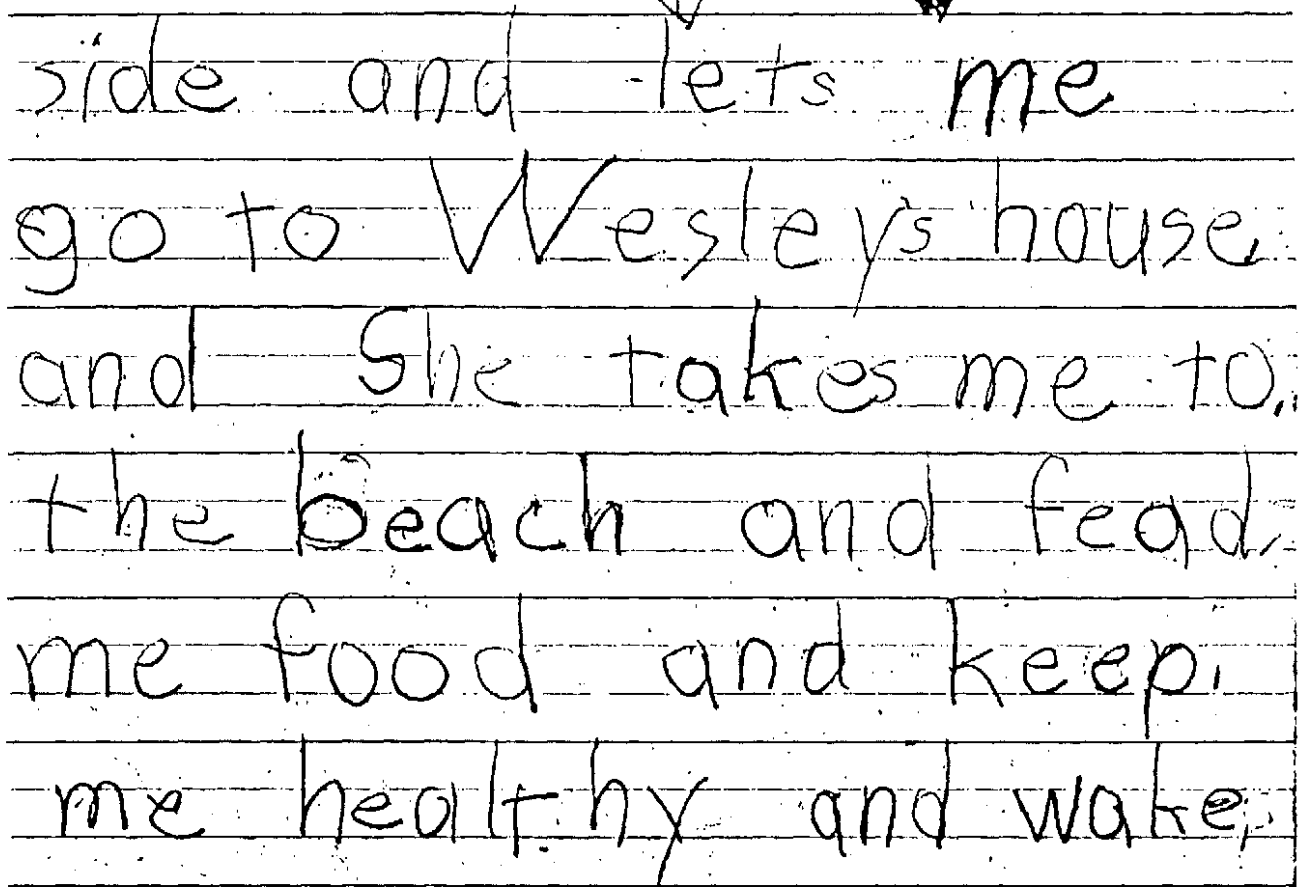 side and lets me
go to Wesley's house
and She takes me to
the beach and fead
me food and keep
me healthy and wake